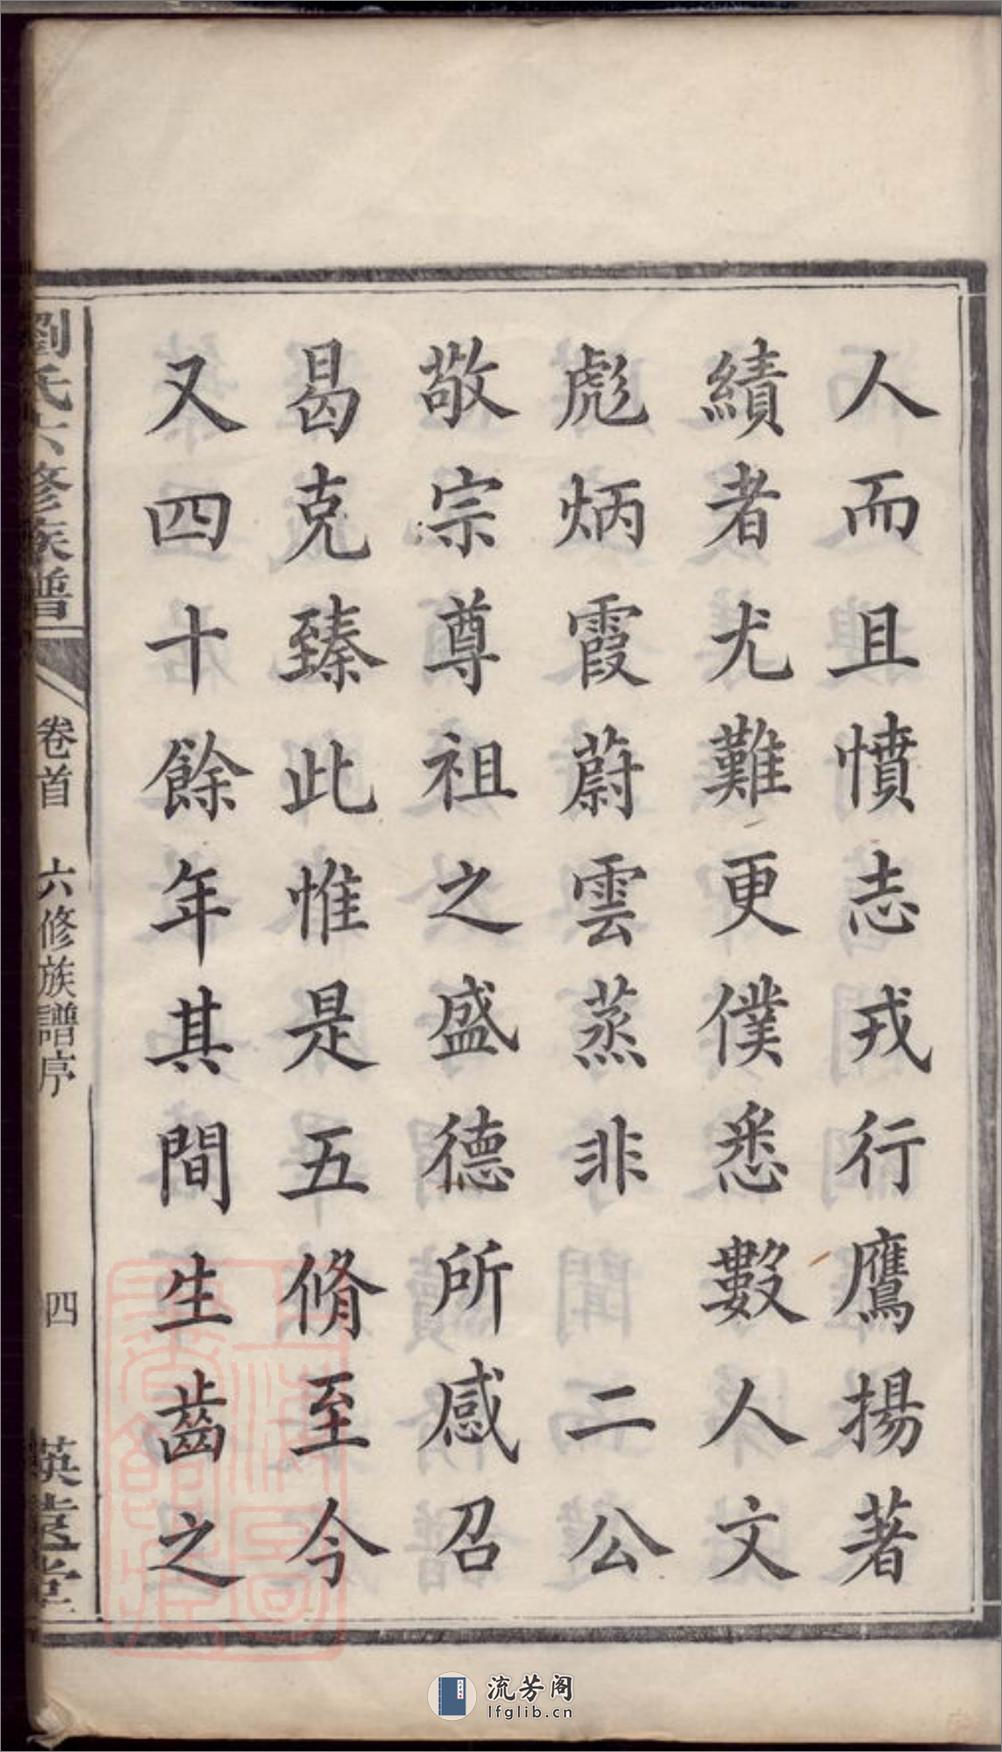 人而且憤志戎行鷹揚著
績者尤難更僕悉數人文
彪炳霞蔚雲蒸非二公
敬宗尊祖之盛德所感召
曷克臻此惟是五脩至今
又四十餘年其間生齒之
劉氏六修族譜
卷首
六修族譜序
四
堂
流芳阁
lfglib.cn